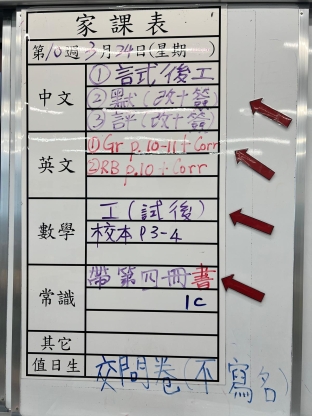 家課表
第10週3月24日(星期 )
中文
①試後工
②默(改+簽)
③評(改+簽)
英文
①Gr p.10-11+Corr
②RB p.10+Corr
數學
工(試後)
校本 P3-4
常識
帶第四冊書
1C
其它
值日生
交問卷(不寫名)